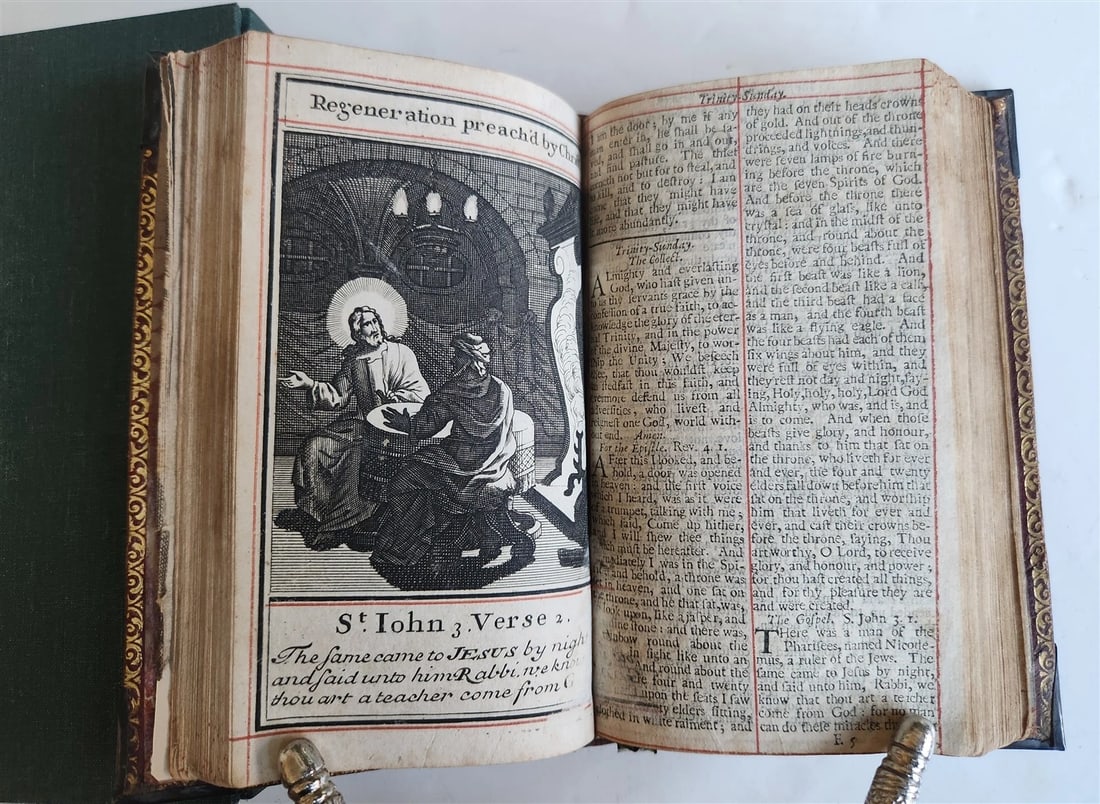 Regeneration preach'd by
St. Iohn 3. Verse 2.
The ſame came to JESUS by
and ſaid unto him Rabbi, we
thou art a teacher come from
Trinity-Sunday.
am the door; by me if any
enter in, he ſhall be
and ſhall go in and out,
find paſture. The thief
not but for to ſteal, and
kill, and to deſtroy; I am
that they might have
and that they might have
more abundantly.
Trinity-Sunday.
The Collect.
ALmighty and everlaſting
God, who haſt given
us thy ſervants grace by the
confeſſion of a true faith, to
knowledge the glory of the
Trinity, and in the power
of the divine Majeſty, to
ſhip the Unity; We beſeech
thee, that thou wouldſt keep
ſtedfaſt in this faith, and
evermore defend us from all
adverſities, who liveſt and
reigneſt one God, world
out end. Amen.
For the Epiſtle. Rev. 4. 1.
AFter this I looked, and
hold, a door was opened
heaven: and the firſt voice
which I heard, was as it were
a trumpet, talking with me;
which ſaid, Come up hither,
and I will ſhew thee things
which muſt be hereafter. And
immediately I was in the
and behold, a throne was
in heaven, and one ſat on
the throne, and he that ſat, was,
look upon, like a jaſper, and
ſtone: and there was,
round about the
in ſight like unto an
And round about the
were four and twenty
upon the ſeats I ſaw
elders ſitting,
clothed in white raiment; and
they had on their heads crowns
of gold. And out of the throne
proceeded lightnings, and thun-
drings, and voices. And there
were ſeven lamps of fire burn-
ing before the throne, which
are the ſeven Spirits of God.
And before the throne there
was a ſea of glaſs, like unto
cryſtal: and in the midſt of the
throne, and round about the
throne, were four beaſts full of
eyes before and behind. And
the firſt beaſt was like a lion,
and the ſecond beaſt like a calf,
and the third beaſt had a face
as a man, and the fourth beaſt
was like a flying eagle. And
the four beaſts had each of them
ſix wings about him, and they
were full of eyes within, and
they reſt not day and night, ſay-
ing, Holy, holy, holy, Lord God
Almighty, who was, and is, and
is to come. And when thoſe
beaſts give glory, and honour,
and thanks to him that ſat on
the throne, who liveth for ever
and ever, the four and twenty
elders fall down before him that
ſat on the throne, and worſhip
him that liveth for ever and
ever, and caſt their crowns be-
fore the throne, ſaying, Thou
art worthy, O Lord, to receive
glory, and honour, and power;
for thou haſt created all things,
and for thy pleaſure they are
and were created.
The Goſpel. S. John 3. 1.
THere was a man of the
Phariſees, named Nicode-
mus, a ruler of the Jews. The
ſame came to Jeſus by night,
and ſaid unto him, Rabbi, we
know that thou art a teacher
come from God: for no man
can do theſe miracles
F. 5